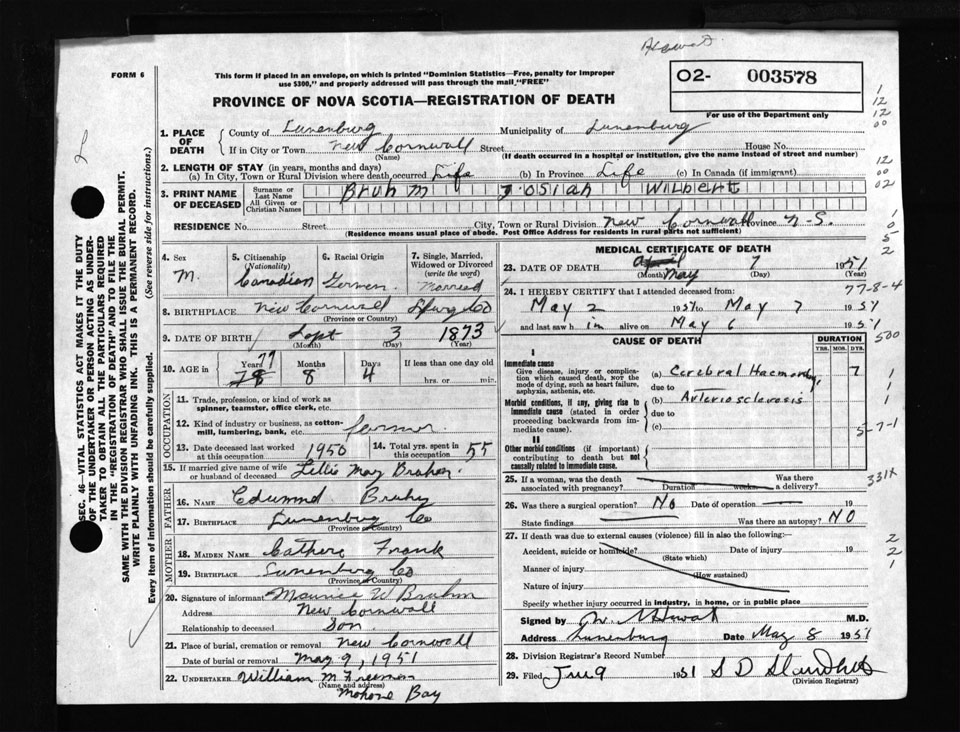 FORM 6
This form if placed in an envelope, on which is printed "Dominion Statistics—Free, penalty for improper
use $300," and properly addressed will pass through the mail "FREE"
O2- 003578
For use of the Department only
PROVINCE OF NOVA SCOTIA—REGISTRATION OF DEATH
1. PLACE OF DEATH
County of Lunenburg Municipality of Lunenburg
If in City or Town New Cornwall Street House No.
(Name) (If death occurred in a hospital or institution, give the name instead of street and number)
2. LENGTH OF STAY (in years, months and days)
(a) In City, Town or Rural Division where death occurred Life (b) In Province Life (c) In Canada (if immigrant)
3. PRINT NAME OF DECEASED
Surname or Last Name Bruhm Josiah Wilbert
All Given or Christian Names
RESIDENCE No. Street City, Town or Rural Division New Cornwall Province N-S.
(Residence means usual place of abode. Post Office Address for residents in rural parts not sufficient)
4. Sex M.
5. Citizenship (Nationality) Canadian
6. Racial Origin German
7. Single, Married, Widowed or Divorced (write the word) Married
8. BIRTHPLACE New Cornwall Lburg Co
(Province or Country)
9. DATE OF BIRTH Sept 3 1873
(Month) (Day) (Year)
10. AGE in Years 77 78 Months 8 Days 4 If less than one day old
hrs. or min.
OCCUPATION
11. Trade, profession, or kind of work as
spinner, teamster, office clerk, etc.
12. Kind of industry or business, as cotton-
mill, lumbering, bank, etc. farmer
13. Date deceased last worked at this occupation 1950
14. Total yrs. spent in this occupation 55
15. If married give name of wife or husband of deceased Lillie May
FATHER
16. NAME Bruhm
17. BIRTHPLACE Lunenburg Co
(Province or Country)
MOTHER
18. MAIDEN NAME Frank
19. BIRTHPLACE Lunenburg Co
(Province or Country)
20. Signature of informant Maurice W Bruhm
Address New Cornwall
Relationship to deceased Son.
21. Place of burial, cremation or removal New Cornwall
Date of burial or removal May 9, 1951
22. UNDERTAKER William M Freeman
(Name and address)
Mahone Bay
MEDICAL CERTIFICATE OF DEATH
23. DATE OF DEATH April May 7 1951
(Month) (Day) (Year)
77-8-4
24. I HEREBY CERTIFY that I attended deceased from:
May 2 1951 to May 7 1951
and last saw him alive on May 6 1951
CAUSE OF DEATH
DURATION
YRS. MOS. DYS.
I
Immediate cause
Give disease, injury or complica-
tion which caused death, NOT the
mode of dying, such as heart failure,
asphyxia, asthenia, etc.
(a) Cerebral Haemorhg. 7
due to
Morbid conditions, if any, giving rise to
immediate cause (stated in order
proceeding backwards from im-
mediate cause).
(b) Arteriosclerosis
due to
(c)
II
Other morbid conditions (if important)
contributing to death but not
causally related to immediate cause.
5-7-1
331X
500
25. If a woman, was the death associated with pregnancy? Duration weeks. Was there a delivery?
26. Was there a surgical operation? No Date of operation 19
State findings Was there an autopsy? NO
27. If death was due to external causes (violence) fill in also the following:—
Accident, suicide or homicide? Date of injury 19
(State which)
Manner of injury
(How sustained)
Nature of injury
Specify whether injury occurred in industry, in home, or in public place
Signed by M.D.
Address Lunenburg Date May 8 1951
28. Division Registrar's Record Number
29. Filed 9 1951 S D
(Division Registrar)
SEC. 46—VITAL STATISTICS ACT MAKES IT THE DUTY
OF THE UNDERTAKER OR PERSON ACTING AS UNDER-
TAKER TO OBTAIN ALL THE PARTICULARS REQUIRED
IN THE "REGISTRATION OF DEATH" AND TO FILE THE
SAME WITH THE DIVISION REGISTRAR WHO SHALL ISSUE THE BURIAL PERMIT.
WRITE PLAINLY WITH UNFADING INK. THIS IS A PERMANENT RECORD.
Every item of information should be carefully supplied. (See reverse side for instructions.)